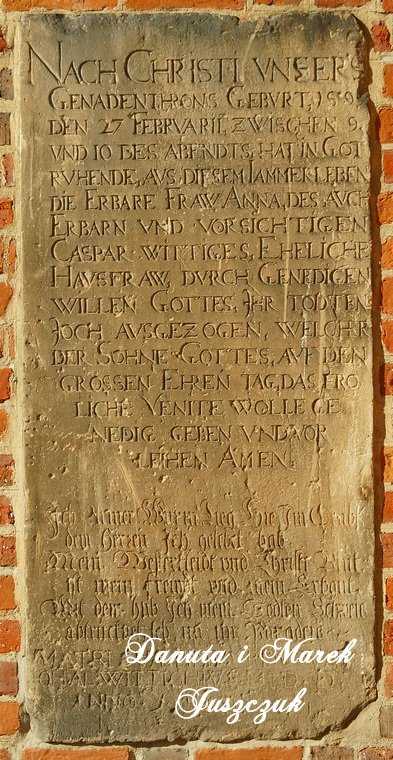 NACH CHRISTI VNSERS
GENADENTHRONS GEBVRT, 159
DEN 27 FEBRVARII, ZWISCHEN 9.
VND 10 DES ABENDTS, HAT IN GOT
RVHENDE, AVS DIESEM IAMMERLEBEN
DIE ERBARE FRAW ANNA, DES AVCH
ERBARN VND VORSICHTIGEN
CASPAR WITTIGES, EHELICHE
HAVSFRAW, DVRCH GENEDIGEN
WILLEN GOTTES, IHR TODTEN
JOCH AVSGEZOGEN, WELCHER
DER SOHNE GOTTES, AVF DEN
GROSSEN EHREN TAG, DAS FRÖ
LICHE VENITE WOLLE GE
NEDIG GEBEN VND VOR
LEIHEN AMEN
Ich armer Wurm lieg hie im Grab
dem Herren Ich gelebt hab
Mein Christi Blut
ist mein und mein Erbgut
Mit dem Ich mein
MATRI
ANNO
Danuta i Marek
Juszczuk